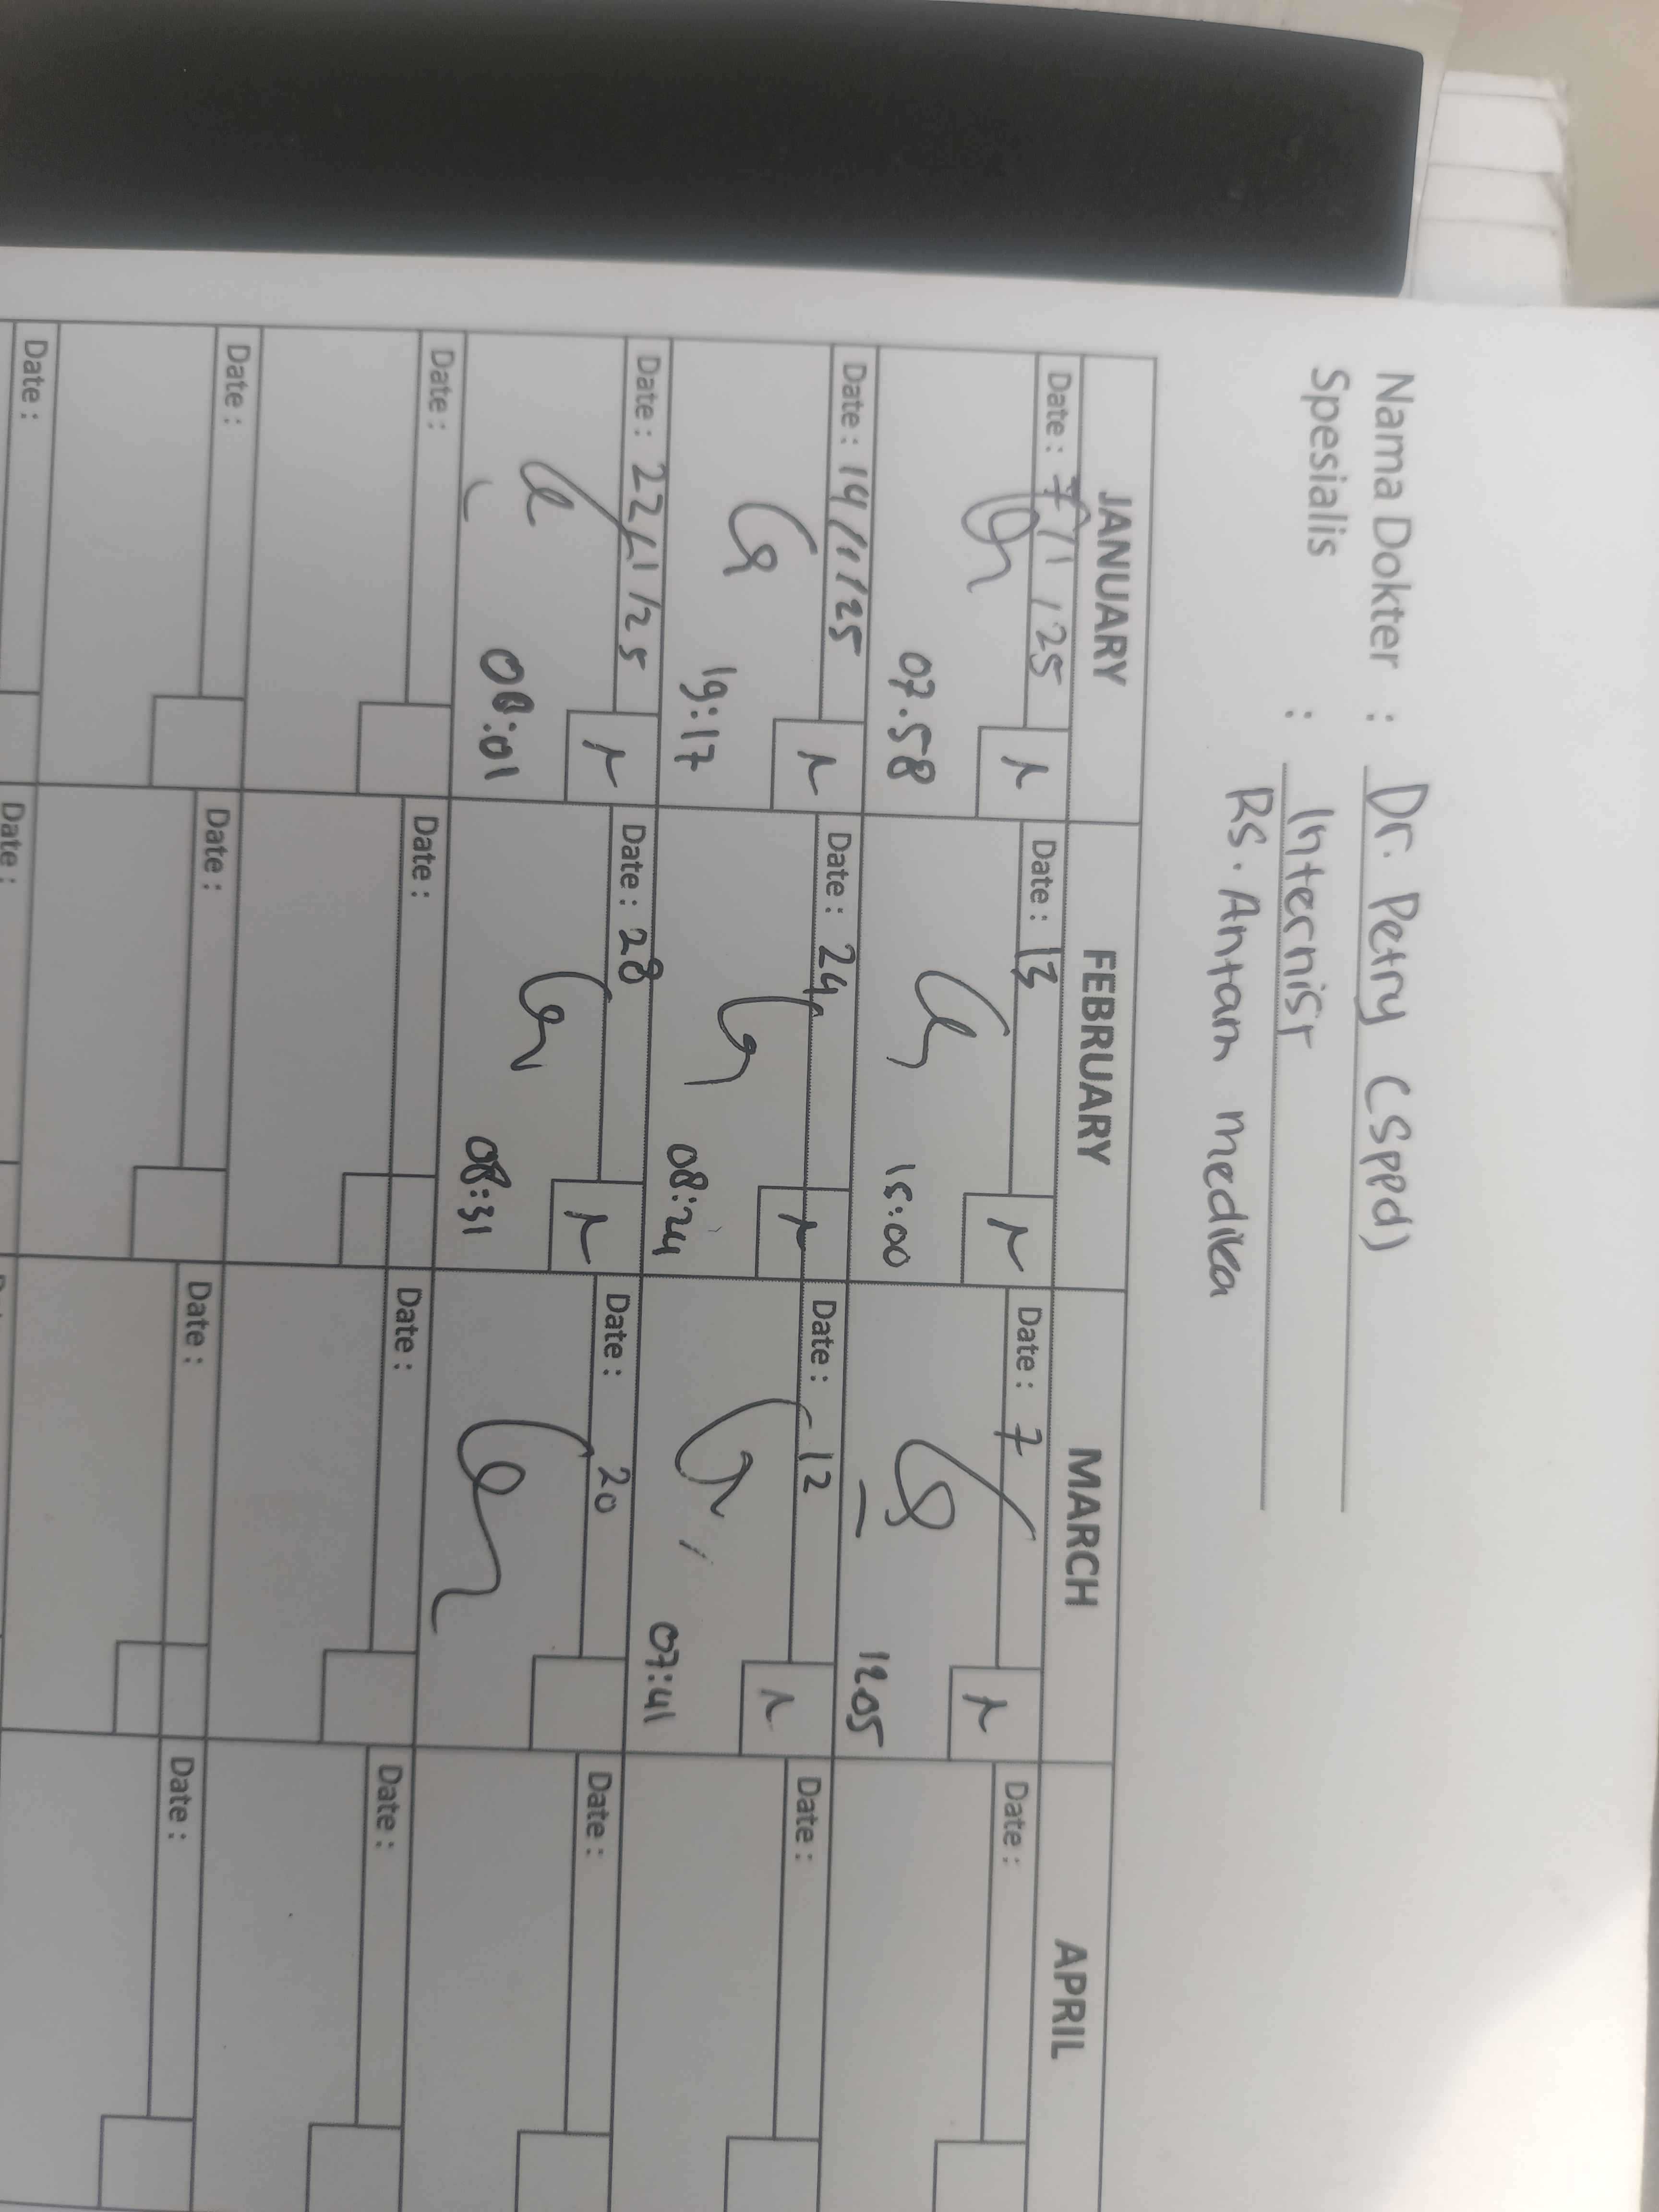 Nama Dokter : Dr. Petry (Sppd)
Spesialis : Internist
RS. Antam medika
JANUARY FEBRUARY MARCH APRIL
Date : 7/1/25 Date : 13 Date : 7 Date :
07.58 15:00 1205
Date : 14/1/25 Date : 24 Date : 12 Date :
19:17 08:24 07:41
Date : 22/1/25 Date : 28 Date : 20 Date :
08:01 08:31
Date : Date : Date : Date :
Date : Date : Date : Date :
Date : Date :